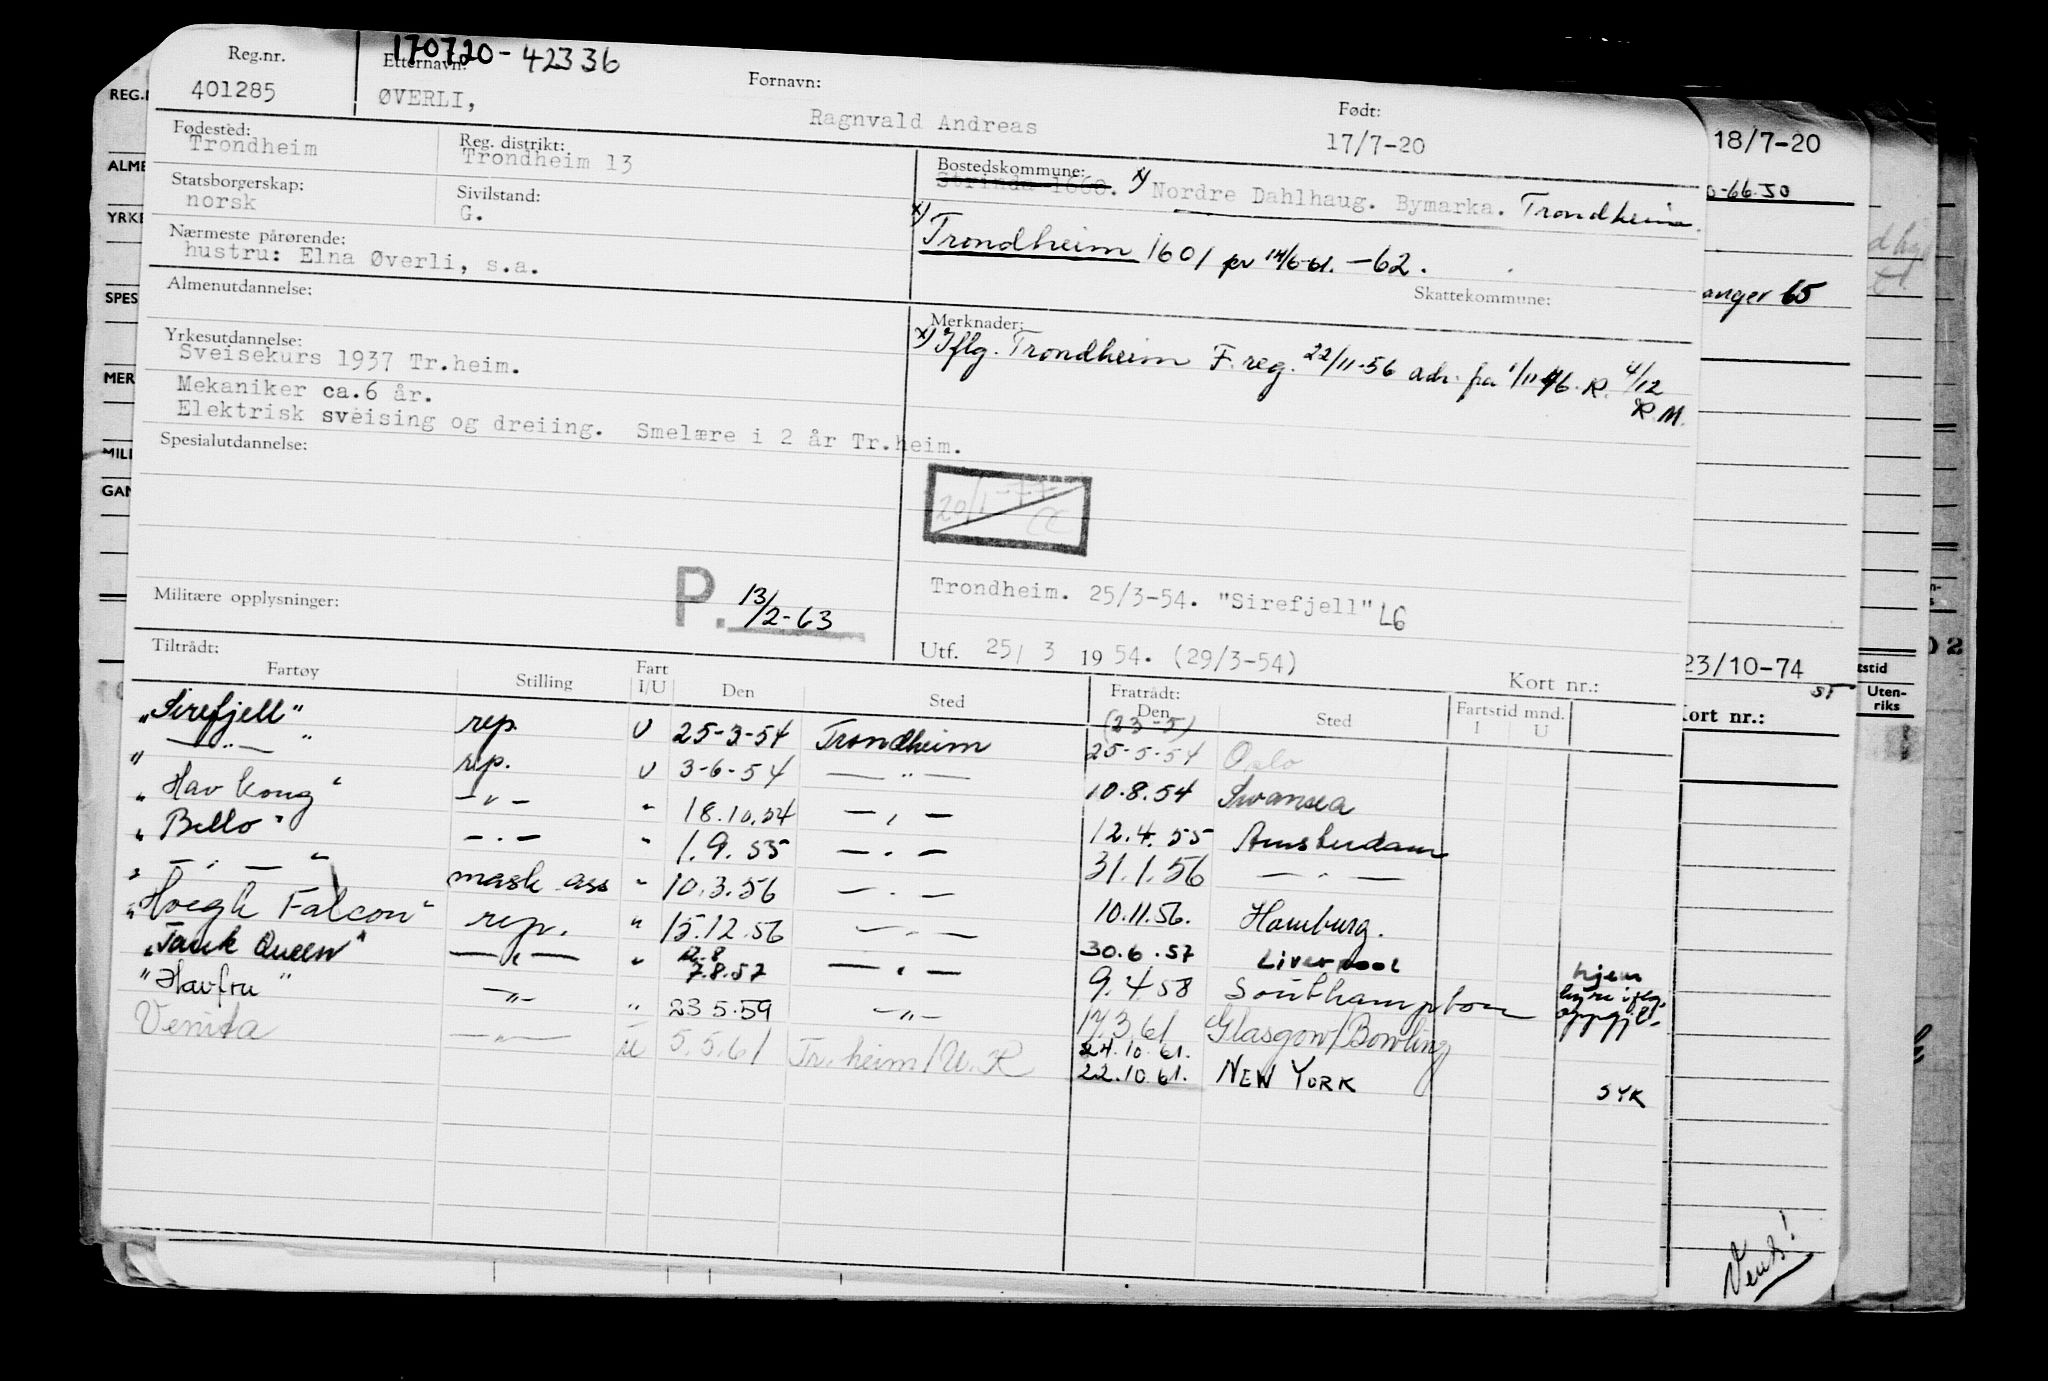 170720-42336
Reg.nr. Etternavn: Fornavn: Født:
401285 ØVERLI, Ragnvald Andreas 17/7-20
Fødested: Reg. distrikt: Bostedskommune:
Trondheim Trondheim 13 Strinda 1660. x) Nordre Dahlhaug. Bymarka. Trondheim.
Statsborgerskap: Sivilstand:
norsk G. x) Trondheim 1601 pr 14/6-61. -62.
Nærmeste pårørende: Skattekommune:
hustru: Elna Øverli, s.a.
Almenutdannelse: Merknader:
x) Iflg. Trondheim F.reg. 22/11-56 adr. fra 1/11-46. R. 4/12
R.M.
Yrkesutdannelse:
Sveisekurs 1937 Tr.heim.
Mekaniker ca.6 år.
Elektrisk sveising og dreiing. Smelære i 2 år Tr.heim.
Spesialutdannelse:
20/1-77
Militære opplysninger: P. 13/2-63
Trondheim. 25/3-54. "Sirefjell" LG
Utf. 25/ 3 19 54. (29/3-54)
Tiltrådt: Fratrådt: Kort nr.:
Fartøy Stilling Fart I/U Den Sted Den Sted Fartstid mnd. I U
"Sirefjell" rep. U 25-3-54 Trondheim (23-5) 25-5-54 Oslo
" — " — " rep. U 3-6-54 — " — 10.8.54 Swansea
"Hav Kong" — " — " 18.10.54 — " — 12.4.55 Amsterdam
"Bello" — " — " 1.9.55 — " — 31.1.56 — " —
" — " — " mask ass " 10.3.56 — " — 10.11.56. Hamburg.
"Høegh Falcon" rep. " 15.12.56 — " — 30.6.57 Liverpool
"Tank Queen" — " — " 7.8.57 — " — 9.4.58 Southampton hjem hyre iflg. oppgj.
"Havfru" — " — " 23.5.59 — " — 17.3.61 Glasgow/Bowling
Venita — " — U 5.5.61 Tr.heim/U.R 24.10.61.
22.10.61. NEW YORK SYK
REG.
ALME
YRKE
SPES
MER
MILI
GAN
18/7-20
0-66.50
anger 65
23/10-74
ST
Kort nr.:
tstid
Uten-
riks
02